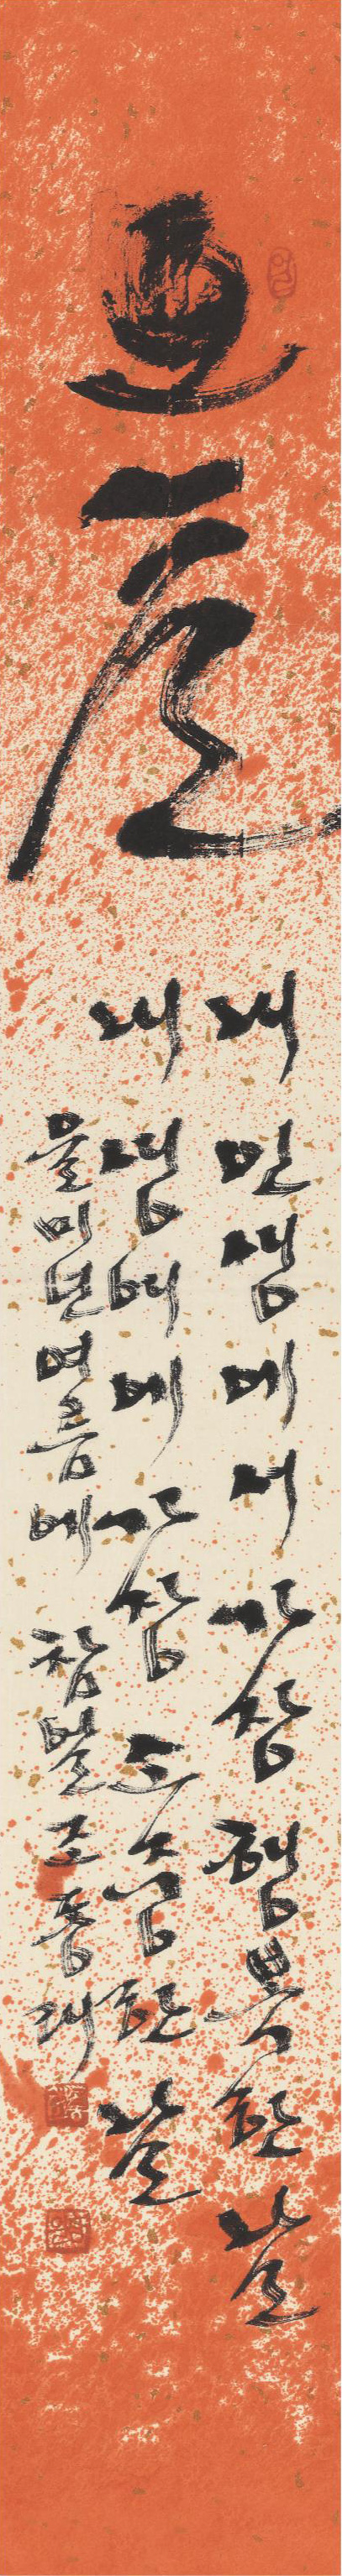 오늘
내 인생에서 가장 행복한 날
내 생애에 가장 소중한 날
을미년 여름에